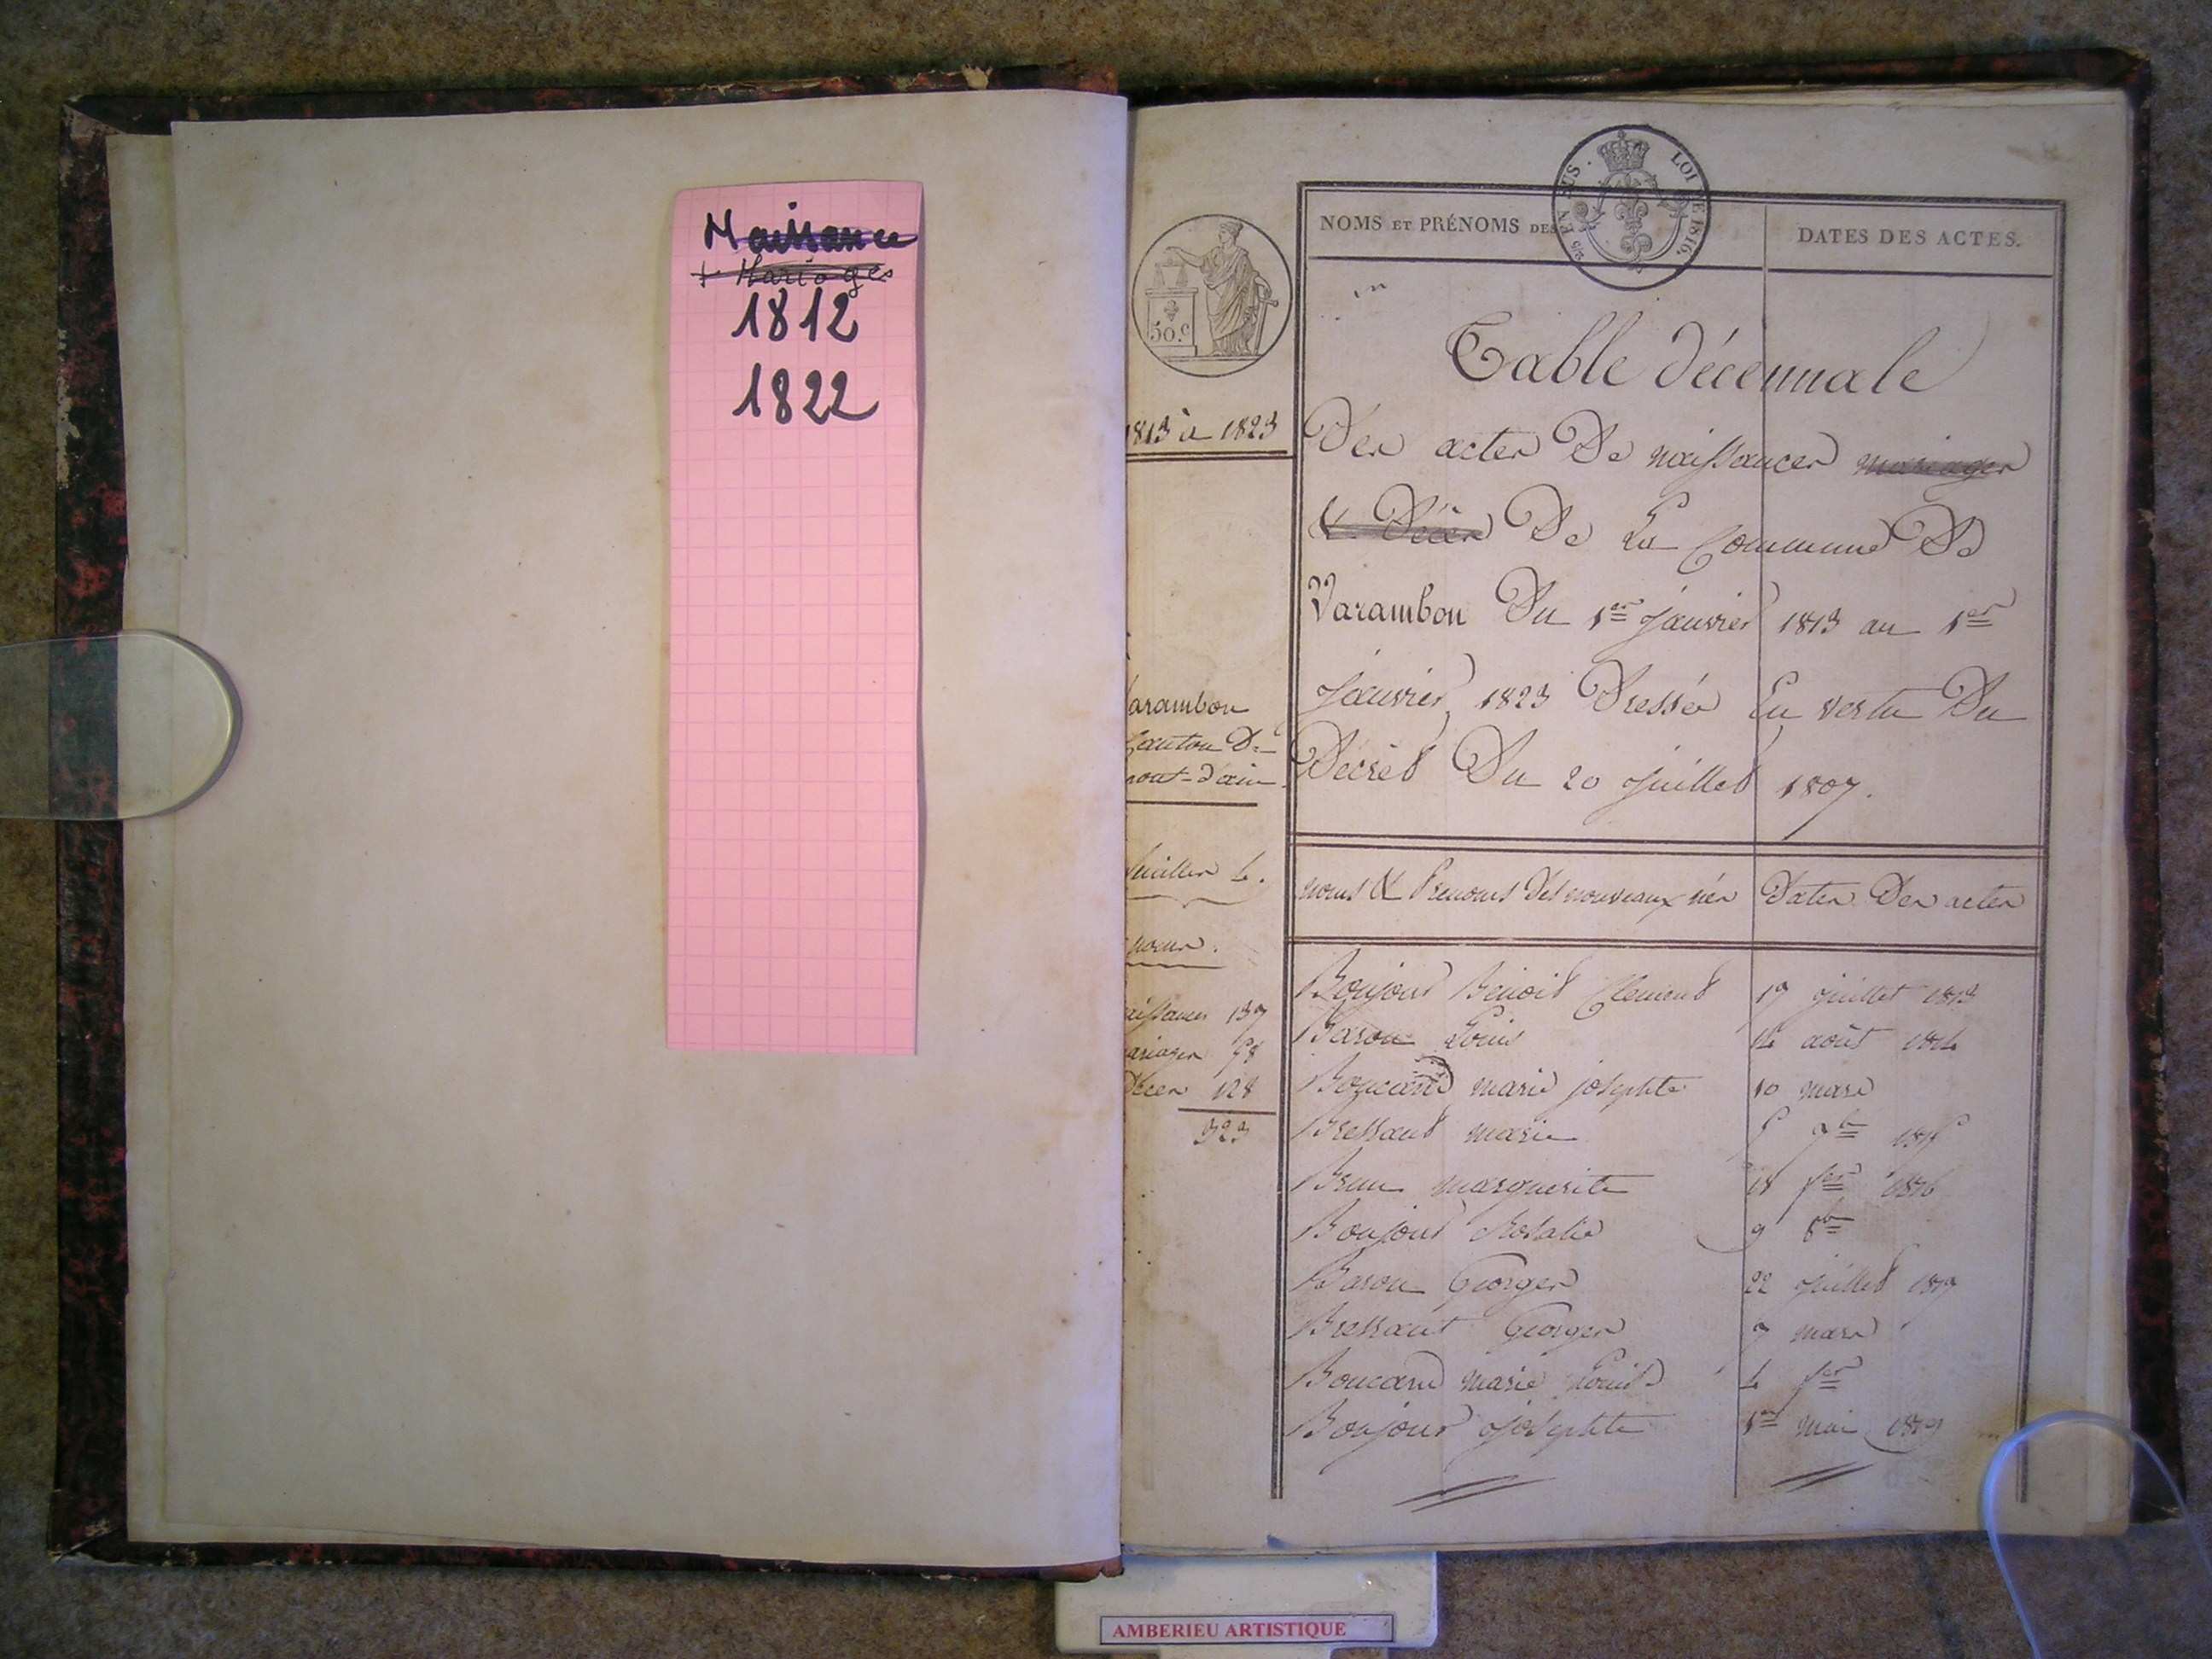 Naissance
+ Mariages
1812
1822
50.c
LOI DE 1816.
NOMS ET PRÉNOMS DES
DATES DES ACTES.
1813 à 1823
Varambon
Canton De
pont-d'ain
feuilles 4.
pour.
naissances 137
mariages 58
Décès 128
323
Table décennale
Des actes De naissances mariages
& Décès De La Commune De
Varambon Du 1er janvier 1813 au 1er
janvier 1823 Dressée En vertu Du
Décret Du 20 juillet 1807.
noms & Prenoms Des nouveaux nés Dates Des actes
Boujour Benoit Clement 17 juillet 1813
Baron Louis 14 août 1814
Boucand marie josephte 10 mars
Bressand marie 5 9b 1815
Brun marguerite 18 fer 1816
Boujour Rosalie 9 8b
Baron Georges 22 juillet 1817
Bressaut Georges 7 mars
Boucand marie Louise 4 fer
Boujour josephte 1er mai 1819
AMBERIEU ARTISTIQUE